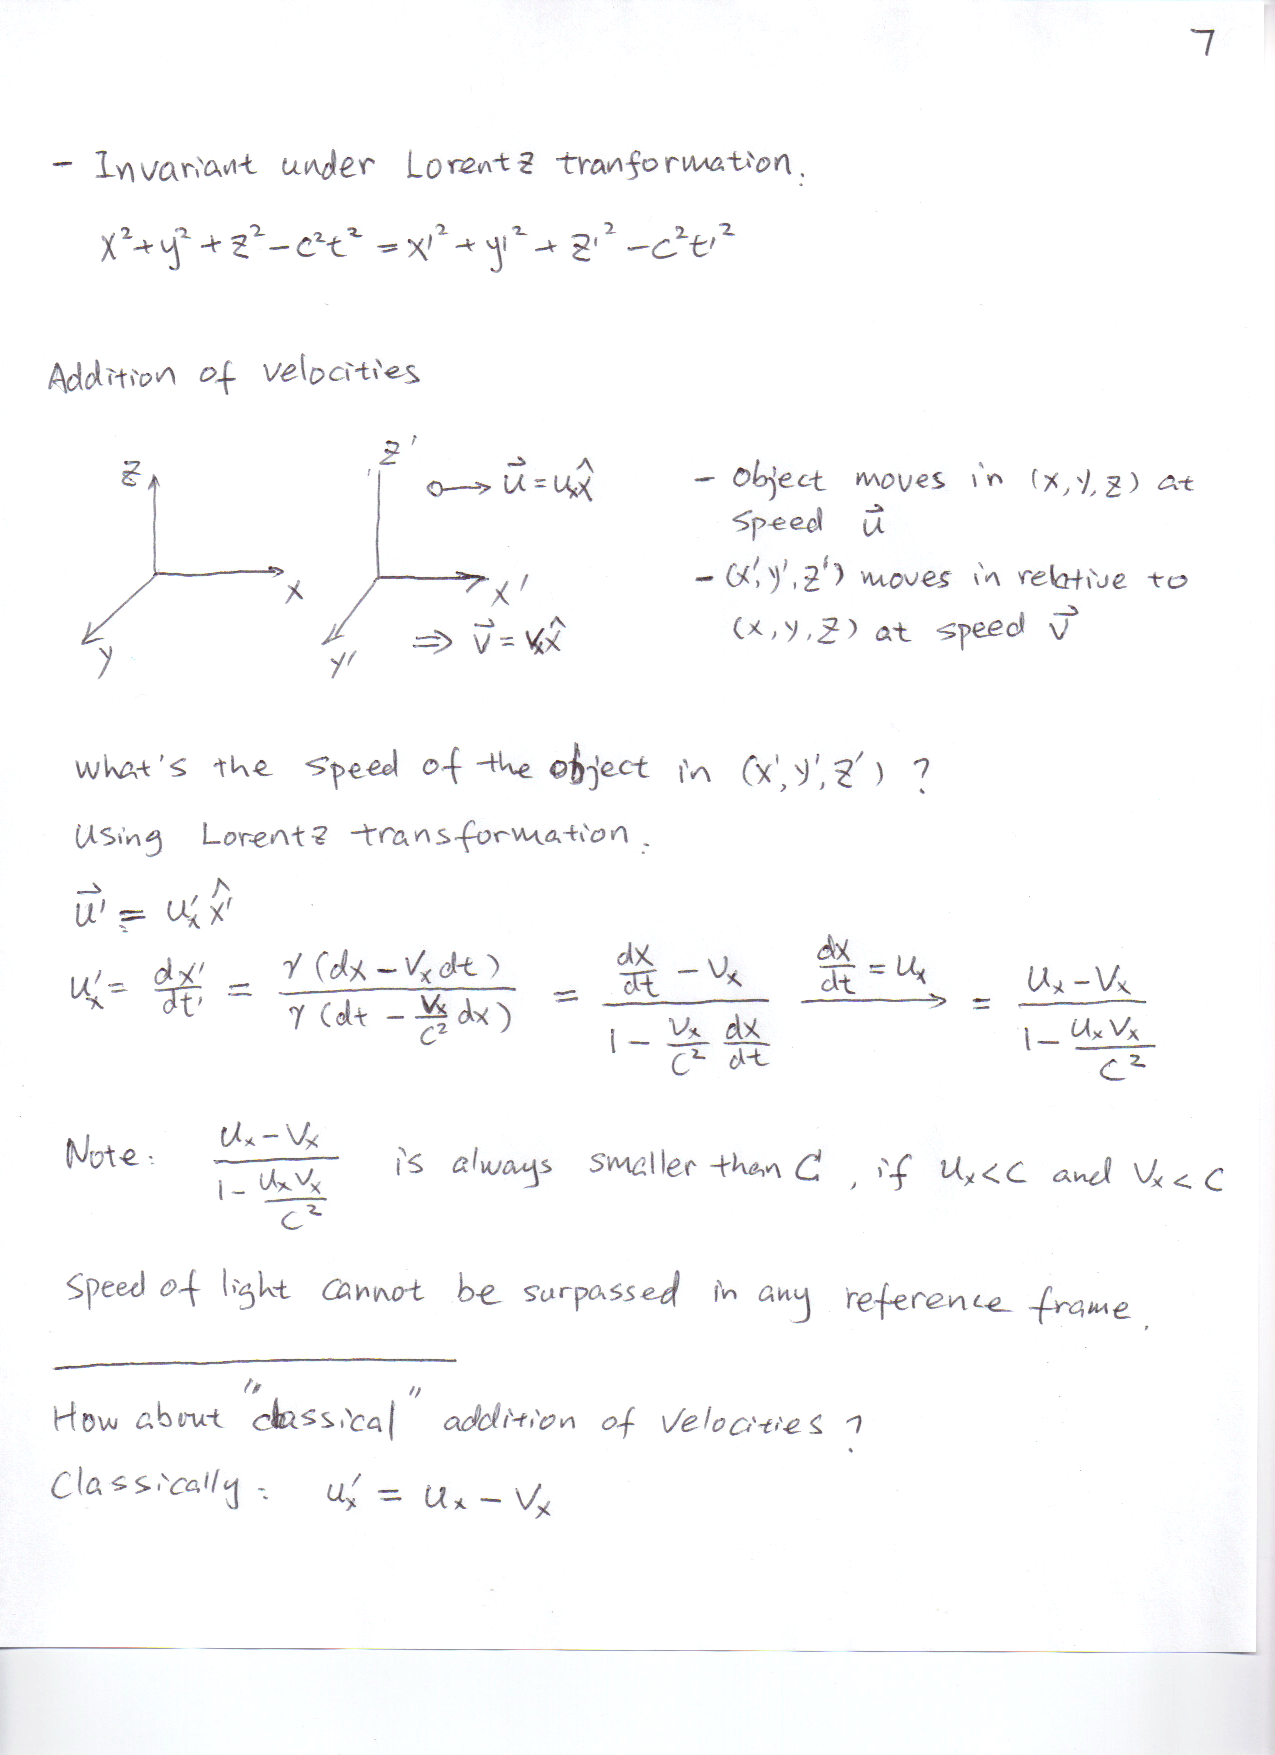 7
- Invariant under Lorentz tranformation.
x²+y²+z²-c²t² = x'²+y'²+z'²-c²t'²
Addition of velocities
z x y
z' x' y'
u⃗ = uₓx̂
⇒ v⃗ = vₓx̂
- object moves in (x,y,z) at
speed u⃗
- (x',y',z') moves in relative to
(x,y,z) at speed v⃗
What's the speed of the object in (x',y',z') ?
Using Lorentz transformation.
u⃗' = uₓ' x̂'
uₓ' = dx'/dt' = γ(dx - vₓdt) / γ(dt - vₓ/c² dx) = (dx/dt - vₓ) / (1 - vₓ/c² dx/dt) dx/dt = uₓ → = (uₓ - vₓ) / (1 - uₓvₓ/c²)
Note: (uₓ - vₓ) / (1 - uₓvₓ/c²) is always smaller than C, if uₓ<c and vₓ<c
Speed of light cannot be surpassed in any reference frame.
How about "classical" addition of velocities ?
Classically: uₓ' = uₓ - vₓ